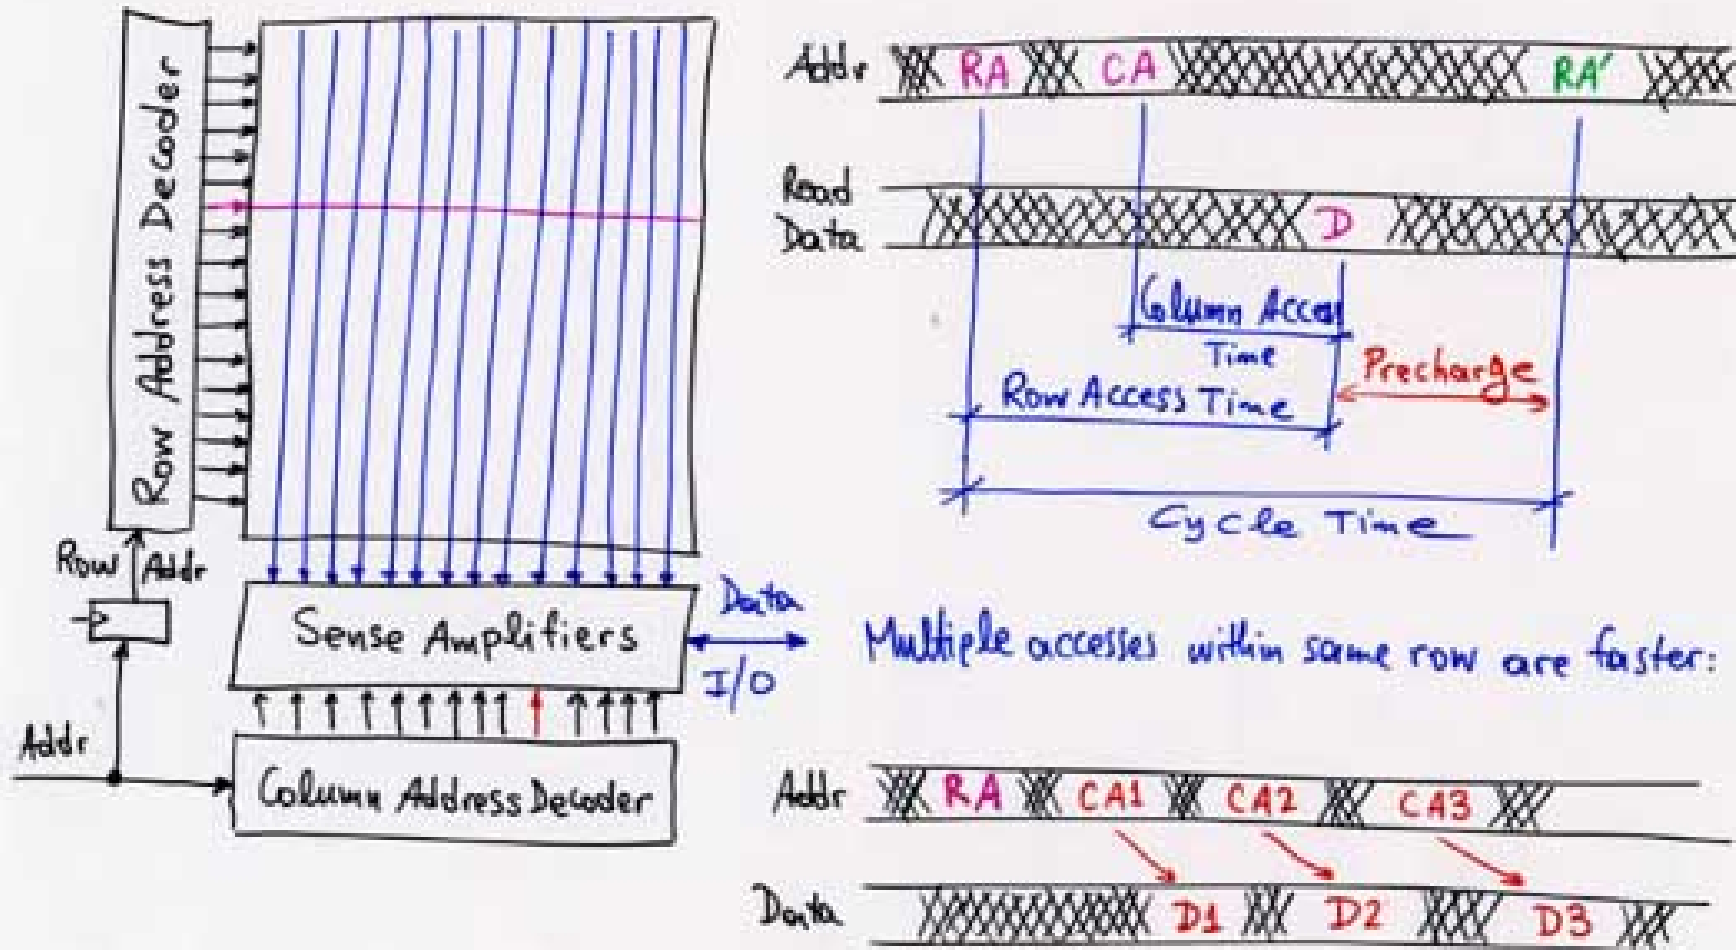 Row Address Decoder
Row Addr
Addr
Sense Amplifiers
Data
I/O
Column Address Decoder
Addr RA CA RA'
Read
Data D
Column Access
Time
Row Access Time
Precharge
Cycle Time
Multiple accesses within same row are faster:
Addr RA CA1 CA2 CA3
Data D1 D2 D3